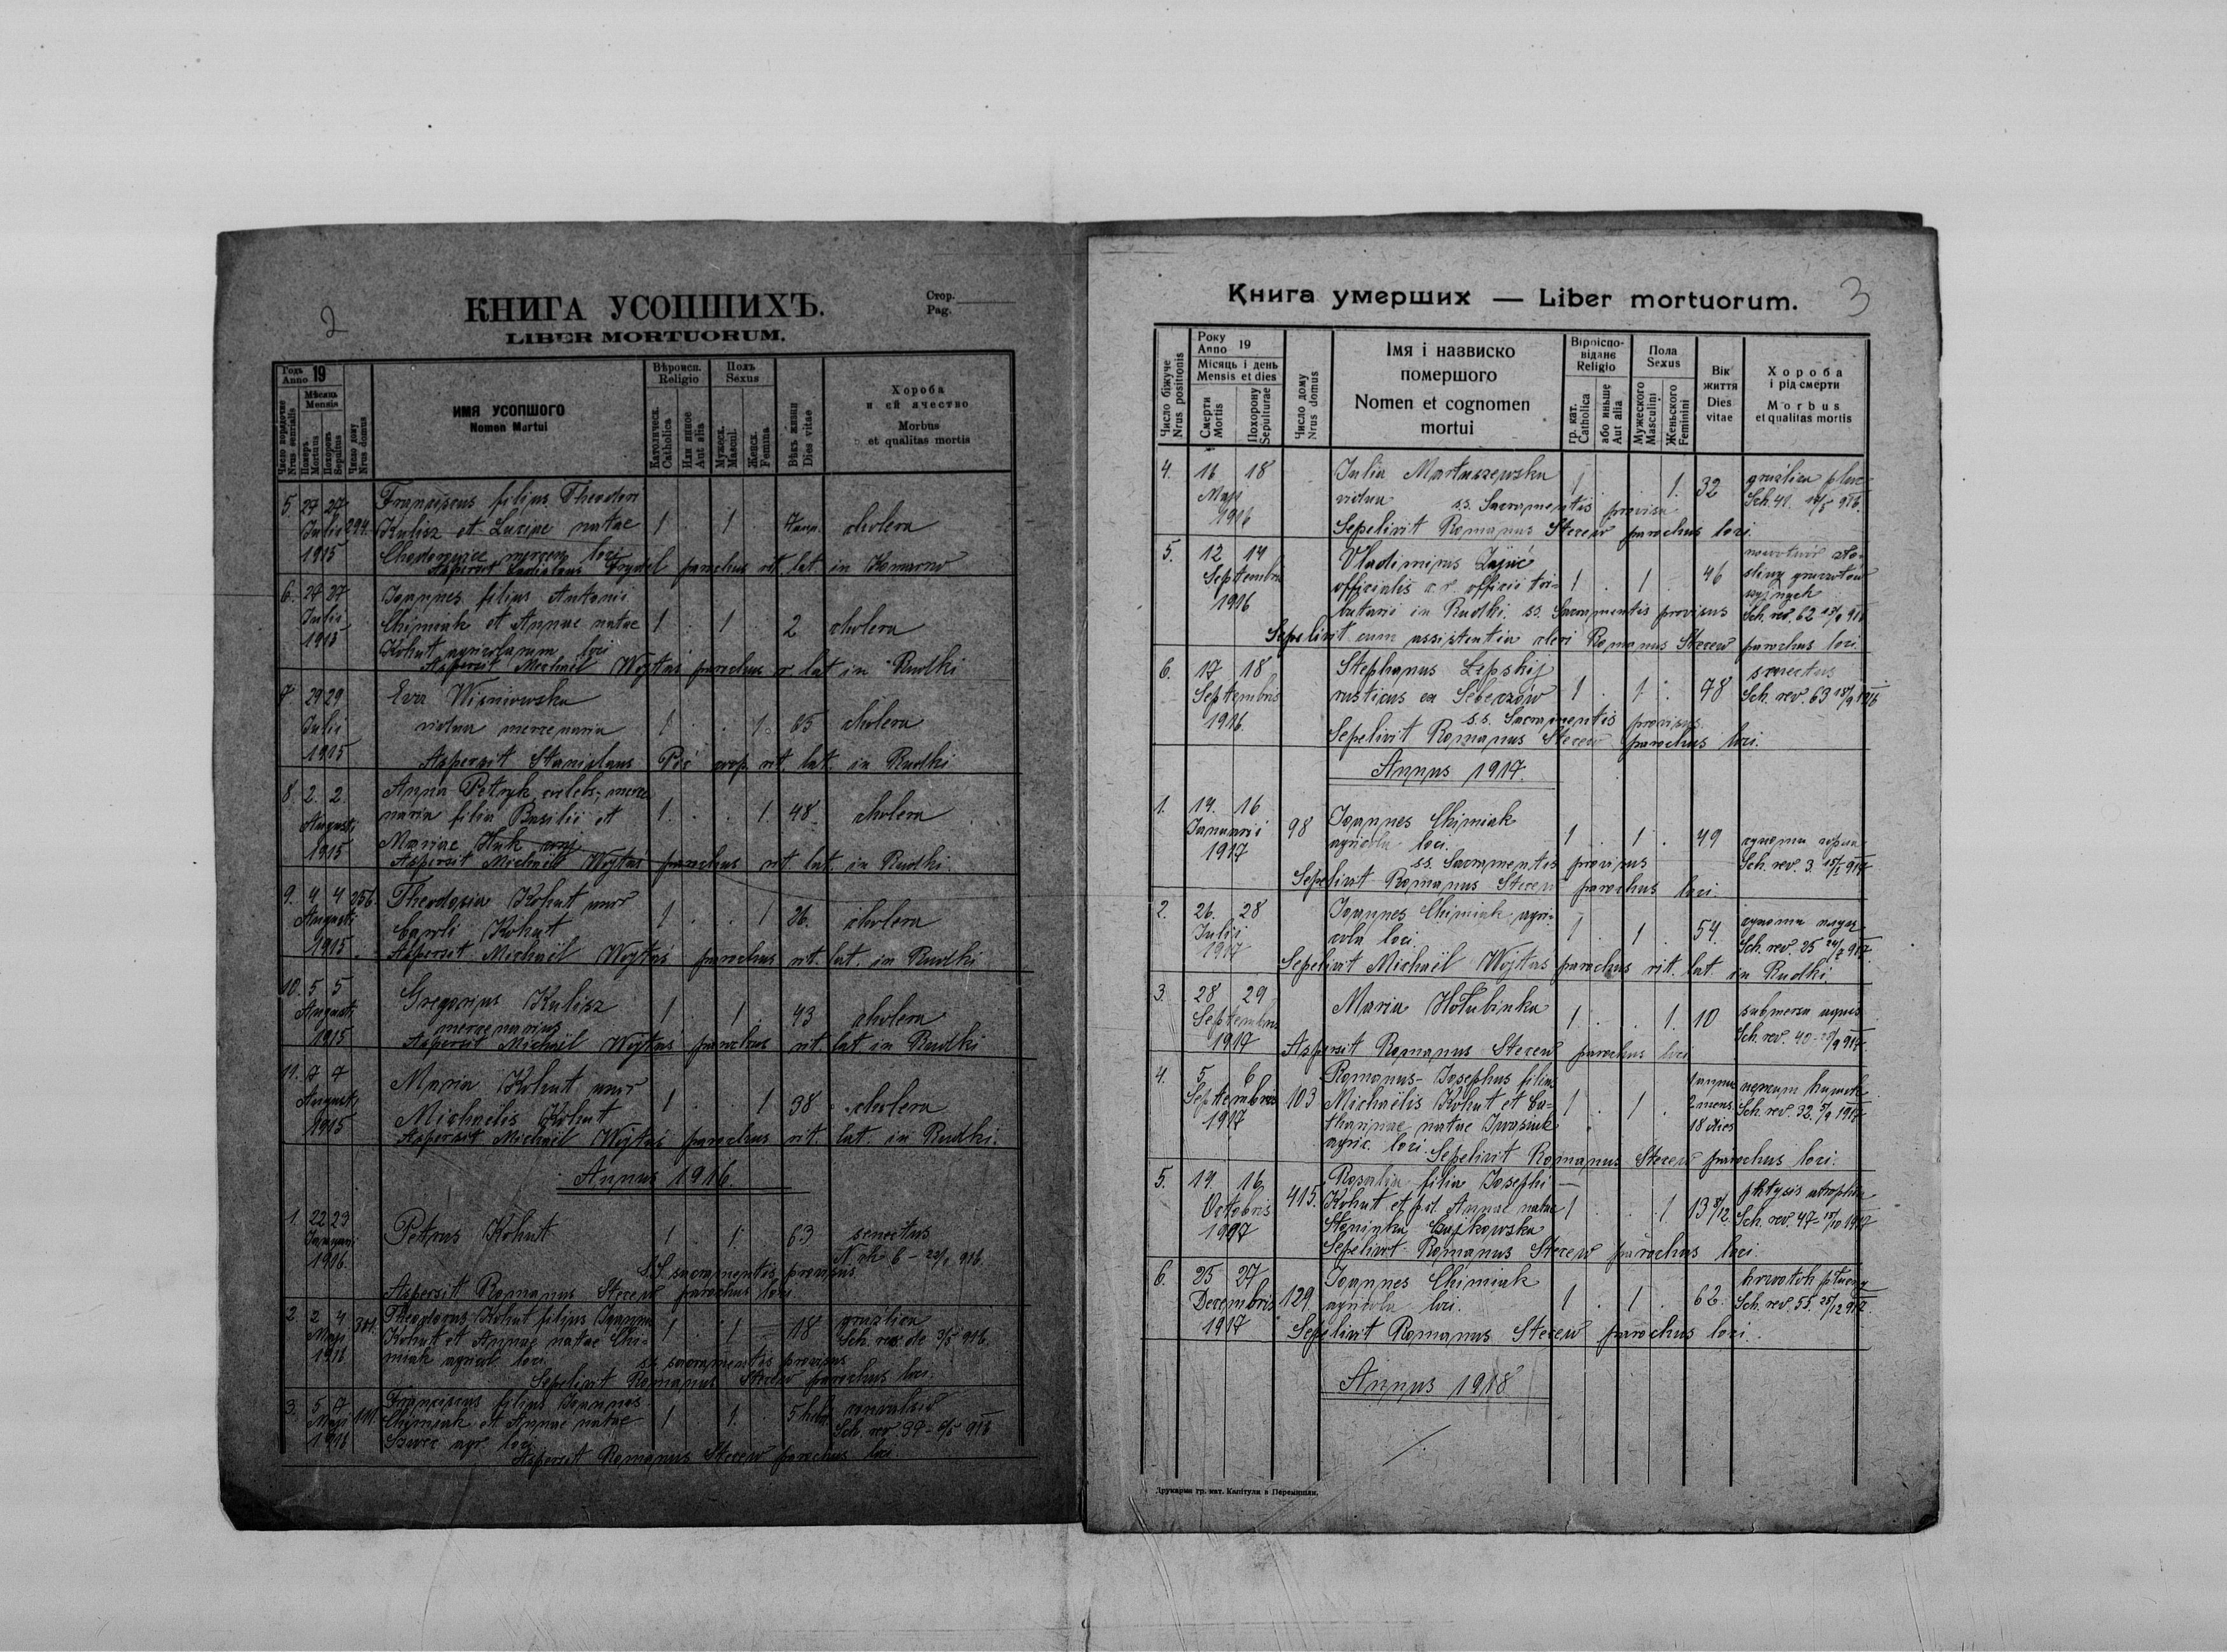 2
КНИГА УСОПШИХЪ.
LIBER MORTUORUM.
Стор.
Pag.
Годъ
Anno 19
Мѣсяць
Mensis
Число порядочне
Nrus serialis
Померъ
Mortuus
Похоронъ
Sepultus
Число дому
Nrus domus
ИМЯ УСОПШОГО
Nomen Mortui
Вѣроисп.
Religio
Католическ.
Catholica
Или инное
Aut alia
Полъ
Sexus
Мужеск.
Mascul.
Женск.
Femina
Вѣкъ жизни
Dies vitae
Хороба
и єй ячество
Morbus
et qualitas mortis
5. 27 27 Julii 1915 294. Franciscus filius Theodori
Kulisz et Luciae natae 1 . 1 . cholera
Aspersit Ladislaus parochus rit. lat. in Komarno
6. 27 27 Julii 1915 Joannes filius Antonii
Chimiak et Annae natae 1 . 1 . 2 cholera
Kohut agricolarum loci
Aspersit Michaël Wojtaś parochus r. lat. in Rudki
7. 29 29 Julii 1915 Eva Wisniowska
vidua mercenaria 1 . . 1. 65 cholera
Aspersit Stanislaus rit. lat. in Rudki
8. 2. 2. Augusti 1915 Anna Petryk, celebs, merce
naria filia Basilii et 1. . . 1. 48 cholera
Mariae Huk
Aspersit Michaël Wojtaś parochus rit. lat. in Rudki.
9. 4 4 Augusti 1915 256. Theodosia Kohut uxor
Caroli Kohut 1 . . 1 26. cholera
Aspersit Michaël Wojtaś parochus rit. lat. in Rudki
10. 5 5 Augusti 1915 Gregorius Kulisz 1 . 1 . 43 cholera
mercenarius
Aspersit Michaël Wojtaś parochus rit. lat in Rudki
11. 7 7 Augusti 1915 Maria Kohut uxor
Michaelis Kohut 1 . . 1 38 cholera
Aspersit Michaël Wojtaś parochus rit. lat. in Rudki.
Annus 1916.
1. 22 23 Januari 1916. Petrus Kohut 1 . 1. . 63 senectus
S.S. sacramentis provisus.
Aspersit Romanus Stecew parochus loci.
2. 2 4 Maji 1916 Theodorus Kohut filius Joannis
Kohut et Annae natae Chi- 1 . 1 18 gruźlica
miak agricol. loci. Sch. rev. de 3/5 916.
ss. sacramentis provisus
Sepelivit Romanus Stecew parochus loci.
3. 5 7 Maji 1916 Franciscus filius Joannis
Chimiak et Annae natae 1 . 1. .
Szwec agr. loci. Sch. rev. 39 - 6/5 916
Aspersit Romanus Stecew parochus loci.
Книга умерших — Liber mortuorum.
3
Число біжуче
Nrus positionis
Року
Anno 19
Місяць і день
Mensis et dies
Смерти
Mortis
Похорону
Sepulturae
Число дому
Nrus domus
Імя і назвиско
помершого
Nomen et cognomen
mortui
Віроіспо-
відане
Religio
гр. кат.
Catholica
або иньше
Aut alia
Пола
Sexus
Мужеского
Masculini
Женьского
Feminini
Вік
життя
Dies
vitae
Хороба
і рід смерти
Morbus
et qualitas mortis
4. 16 18 Maji 1916 Julia Martuszewska 1 . . 1. 32 gruźlica płuc
vidua ss. Sacramentis provisa
Sepelivit Romanus Stecew parochus loci.
5. 12 14 Septembris 1916 Vladimirus Zajac
officialis c. r. officii tri- 1 . 1 46
butarii in Rudki. ss. Sacramentis provisus
Sepelivit cum assistentia cleri Romanus Stecew parochus loci.
6. 17 18 Septembris 1916. Stephanus Łepskij senectus
rusticus ex 1 . 1. . 78
s.s. Sacramentis provisus.
Sepelivit Romanus Stecew parochus loci.
Annus 1917.
1. 14. 16 Januarii 1917 98 Joannes Chimiak
agricola loci. 1 . 1 . 49
ss. Sacramentis provisus
Sepelivit Romanus Stecew parochus loci.
2. 26. 28 Julii 1917 Joannes Chimiak agri-
cola loci. 1 . 1 . 54.
Sepelivit Michaël Wojtas parochus rit. lat. in Rudki.
3. 28 29 Septembris 1917 Maria Hołubinka 1 . . 1. 10 submersa aquis
Aspersit Romanus Stecew parochus loci
4. 5 6 Septembris 1917 103 Romanus-Josephus filius 1 annus
Michaëlis Kohut et Ca- 1 . 1 . 2 mens.
tharinae natae Iwasiuk 18 dies
Sch. rev. 32. 5/9 1917
agric. loci. Sepelivit Romanus Stecew parochus loci.
5. 14. 16. Octobris 1917 415. Rosalia filia Josephi
Kohut et Annae natae 1 . . 1 13 8/12
Sepelivit Romanus Stecew parochus loci.
6. 25 27 Decembris 1917 129. Joannes Chimiak
agricola loci. 1 . 1 . 62.
Sch. rev. 55. 25/12 917.
Sepelivit Romanus Stecew parochus loci.
Annus 1918
Друкарня гр. кат. Капітули в Перемишли.